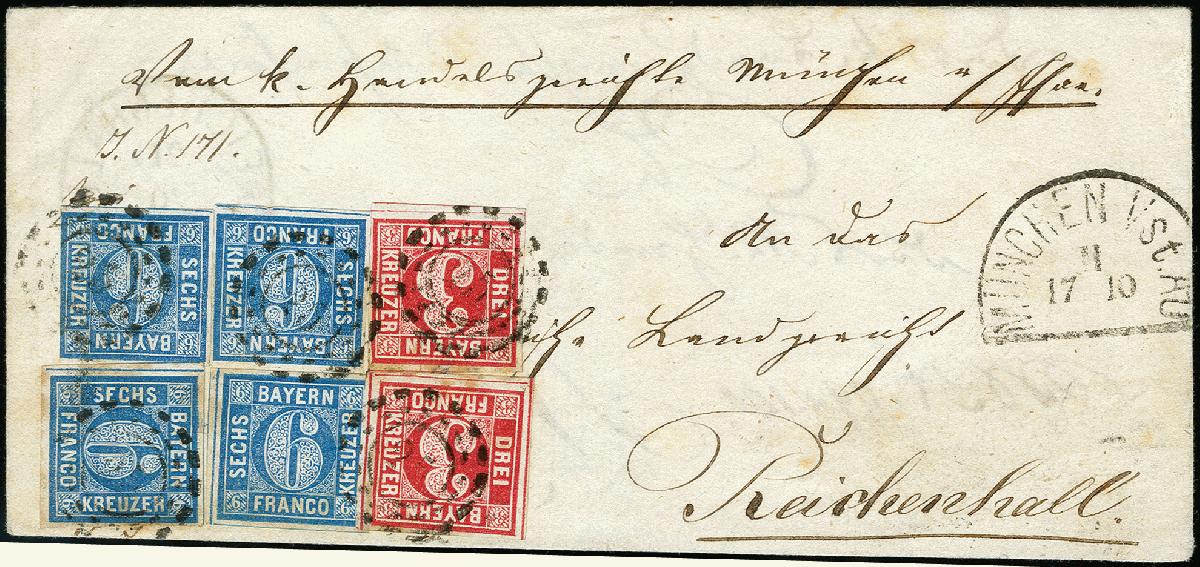 Vom k. Handelsgerichte München
J. N. 171.
An das
Landgericht
Reichenhall.
MÜNCHEN
II
17 10
FRANCO
KREUZER
SECHS
BAYERN
6
FRANCO
KREUZER
SECHS
BAYERN
6
FRANCO
KREUZER
DREI
BAYERN
3
SECHS
FRANCO
BAYERN
KREUZER
6
BAYERN
SECHS
KREUZER
FRANCO
6
FRANCO
KREUZER
DREI
BAYERN
3